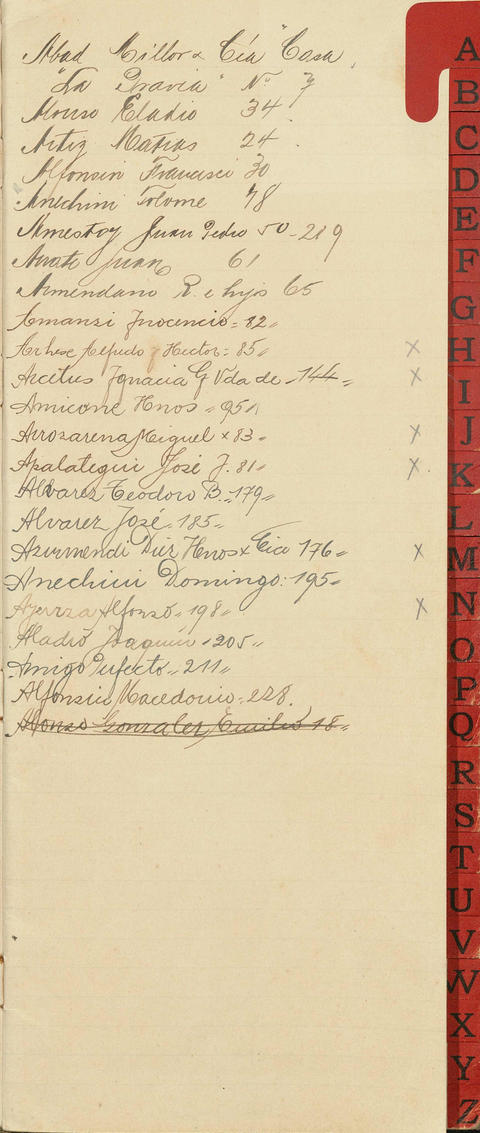 Abad Millor & Cía "Casa
"La Pravia" No 7
Alonso Eladio 34
Artiz Matias 24
Alfonsin Francisco 30
Anechini Tolome 78
Amestoy Juan Pedro 50-219
Juan 61
Armendano R. e hijos 65
Amanzi Inocencio = 82 "
Alfredo y Hector = 85 "
Ignacia G Vda de - 144 "
Amicone Hnos " 95 "
Arrozarena Miguel x 83 "
Apalategui José J. 81 "
Alvarez Teodoro B. - 179 "
Alvarez José " 185 "
Azurmendi Diez Hnos x Cia 176 "
Anechini Domingo : 195 "
Alfonso " 198 "
Aladio Joaquin " 205 "
Amigo Perfecto " 211 "
Alfonsin Macedonio " 228.
Alonso Gonzalez Emilio 18 "
A
B
C
D
E
F
G
H
I
J
K
L
M
N
O
P
Q
R
S
T
U
V
W
X
Y
Z